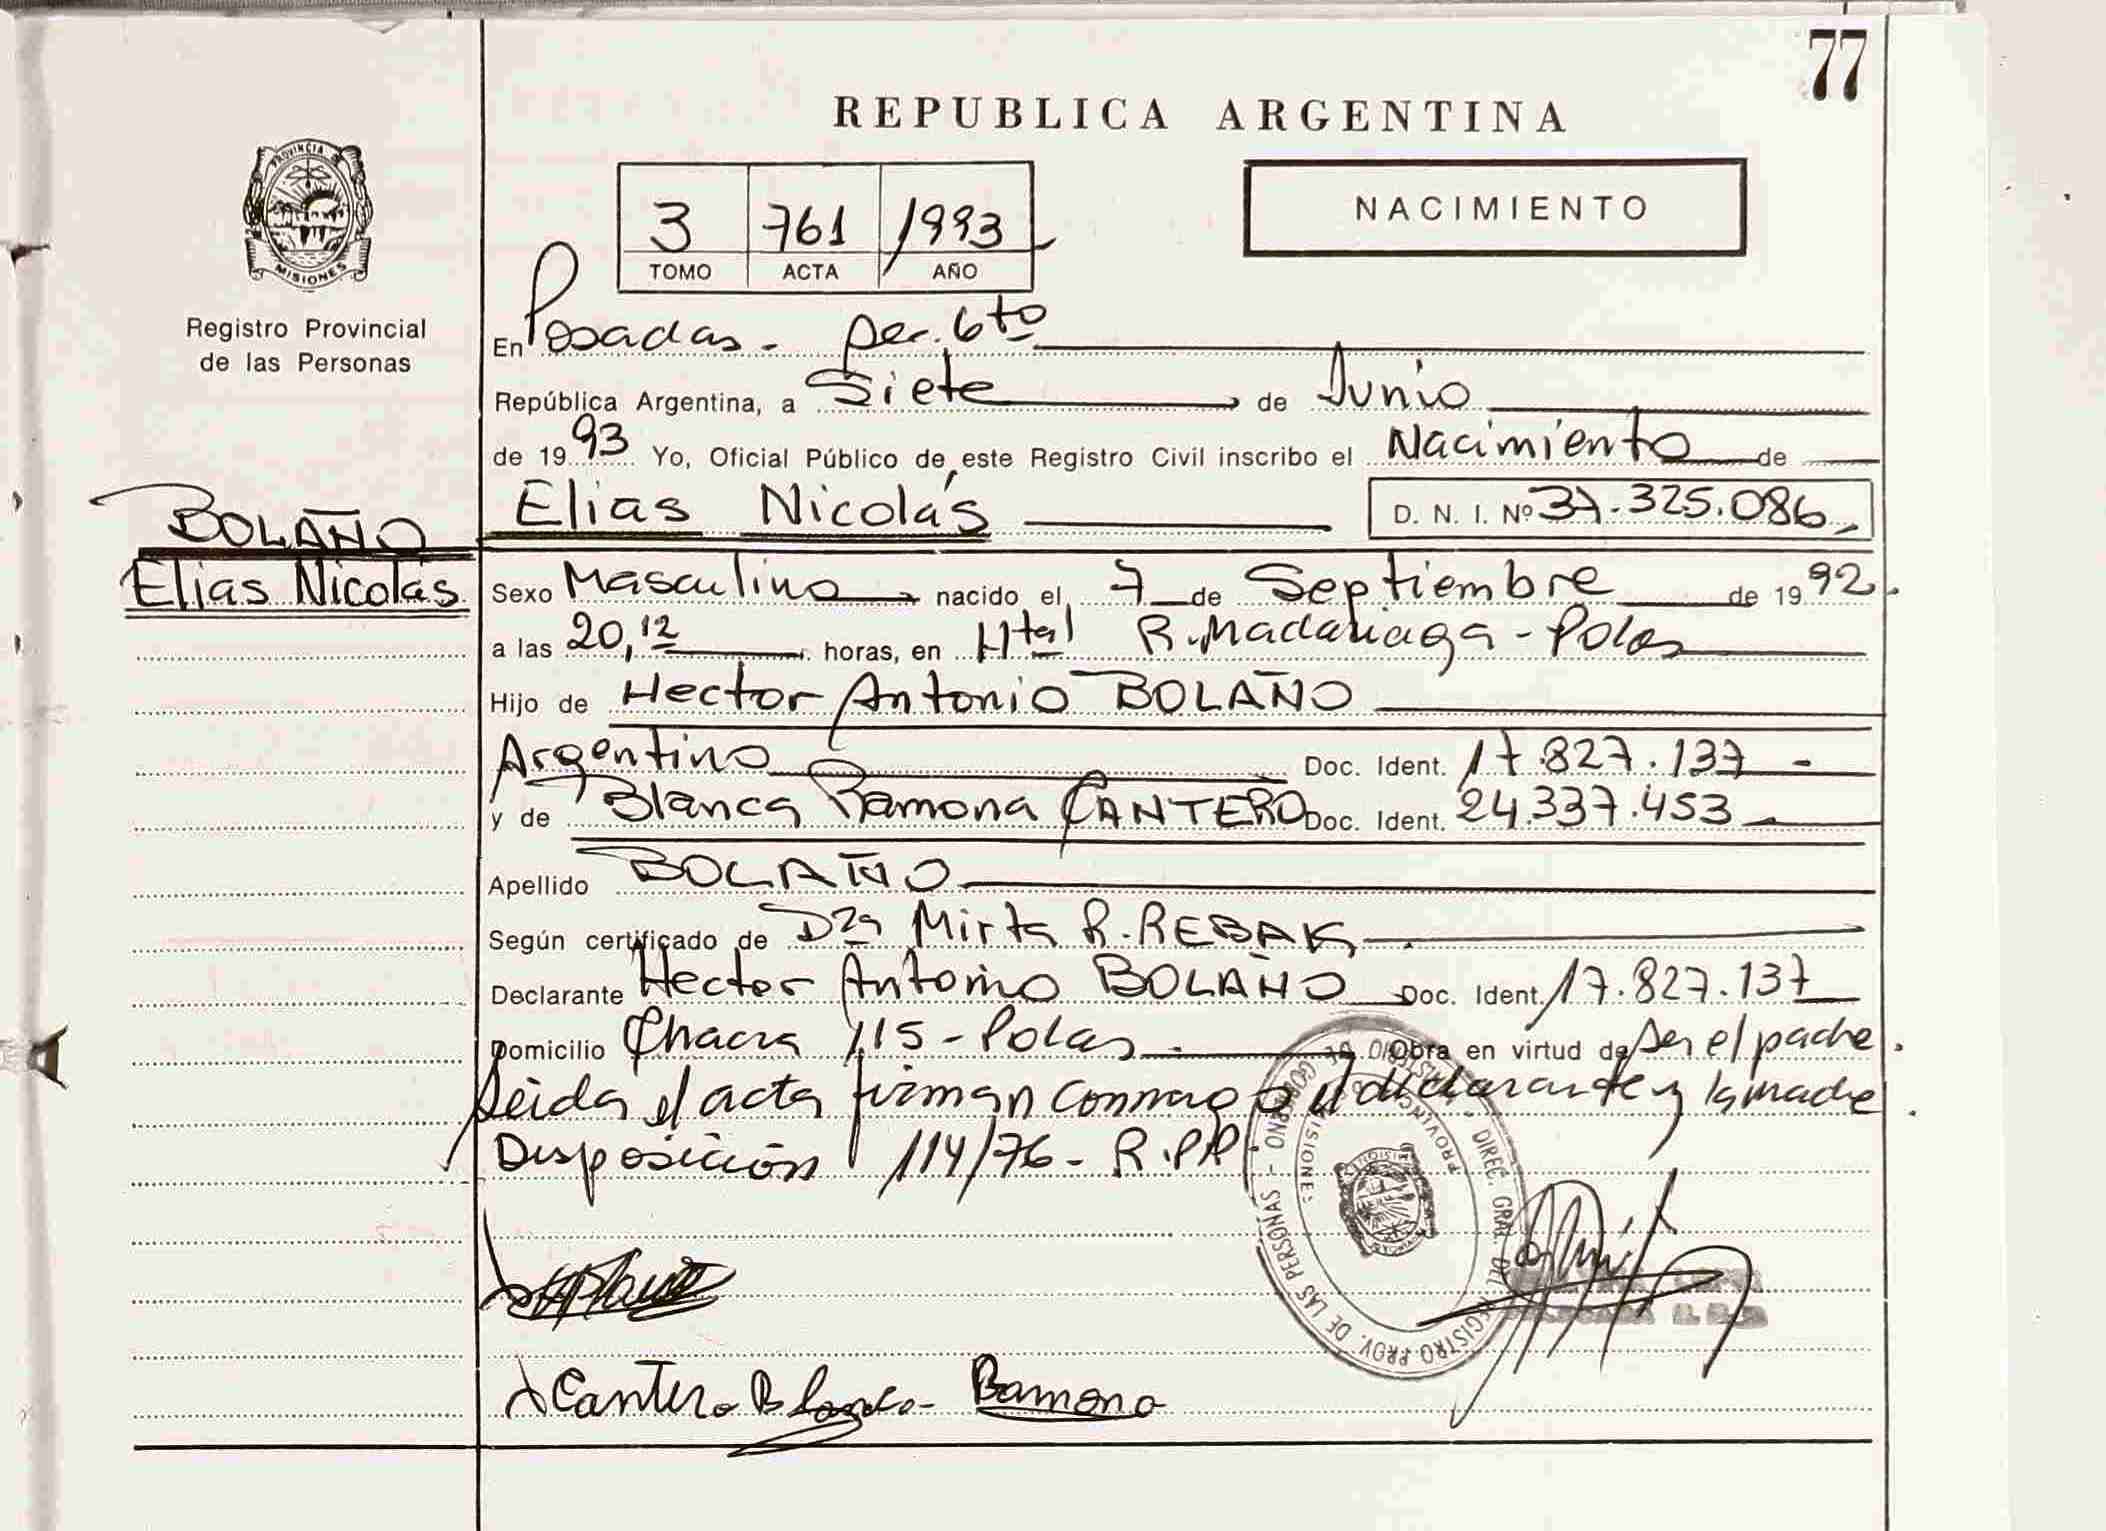 77
REPUBLICA ARGENTINA
PROVINCIA DE
MISIONES
Registro Provincial
de las Personas
3 761 1993
TOMO ACTA AÑO
NACIMIENTO
En Posadas - Sec. 6to
República Argentina, a Siete de Junio
de 1993 Yo, Oficial Público de este Registro Civil inscribo el Nacimiento de
Elias Nicolás D. N. I. Nº 37.325.086
BOLAÑO
Elias Nicolás
Sexo Masculino nacido el 7 de Septiembre de 1992.
a las 20,12 horas, en Htal R. Madariaga - Pdas
Hijo de Hector Antonio BOLAÑO
Argentino Doc. Ident. 17.827.137 -
y de Blanca Ramona CANTERO Doc. Ident. 24.337.453
Apellido BOLAÑO
Según certificado de Dra Mirta R. REBAK
Declarante Hector Antonio BOLAÑO Doc. Ident. 17.827.137
Domicilio Chacra 115 - Pdas Obra en virtud de ser el padre.
Leida el acta firman conmigo el declarante y la madre.
Disposición 114/76 - R.P.P.
MINISTERIO DE GOBIERNO - DIREC. GRAL. DEL REGISTRO PROV. DE LAS PERSONAS
PROVINCIA DE MISIONES
Cantero Blanca Ramona